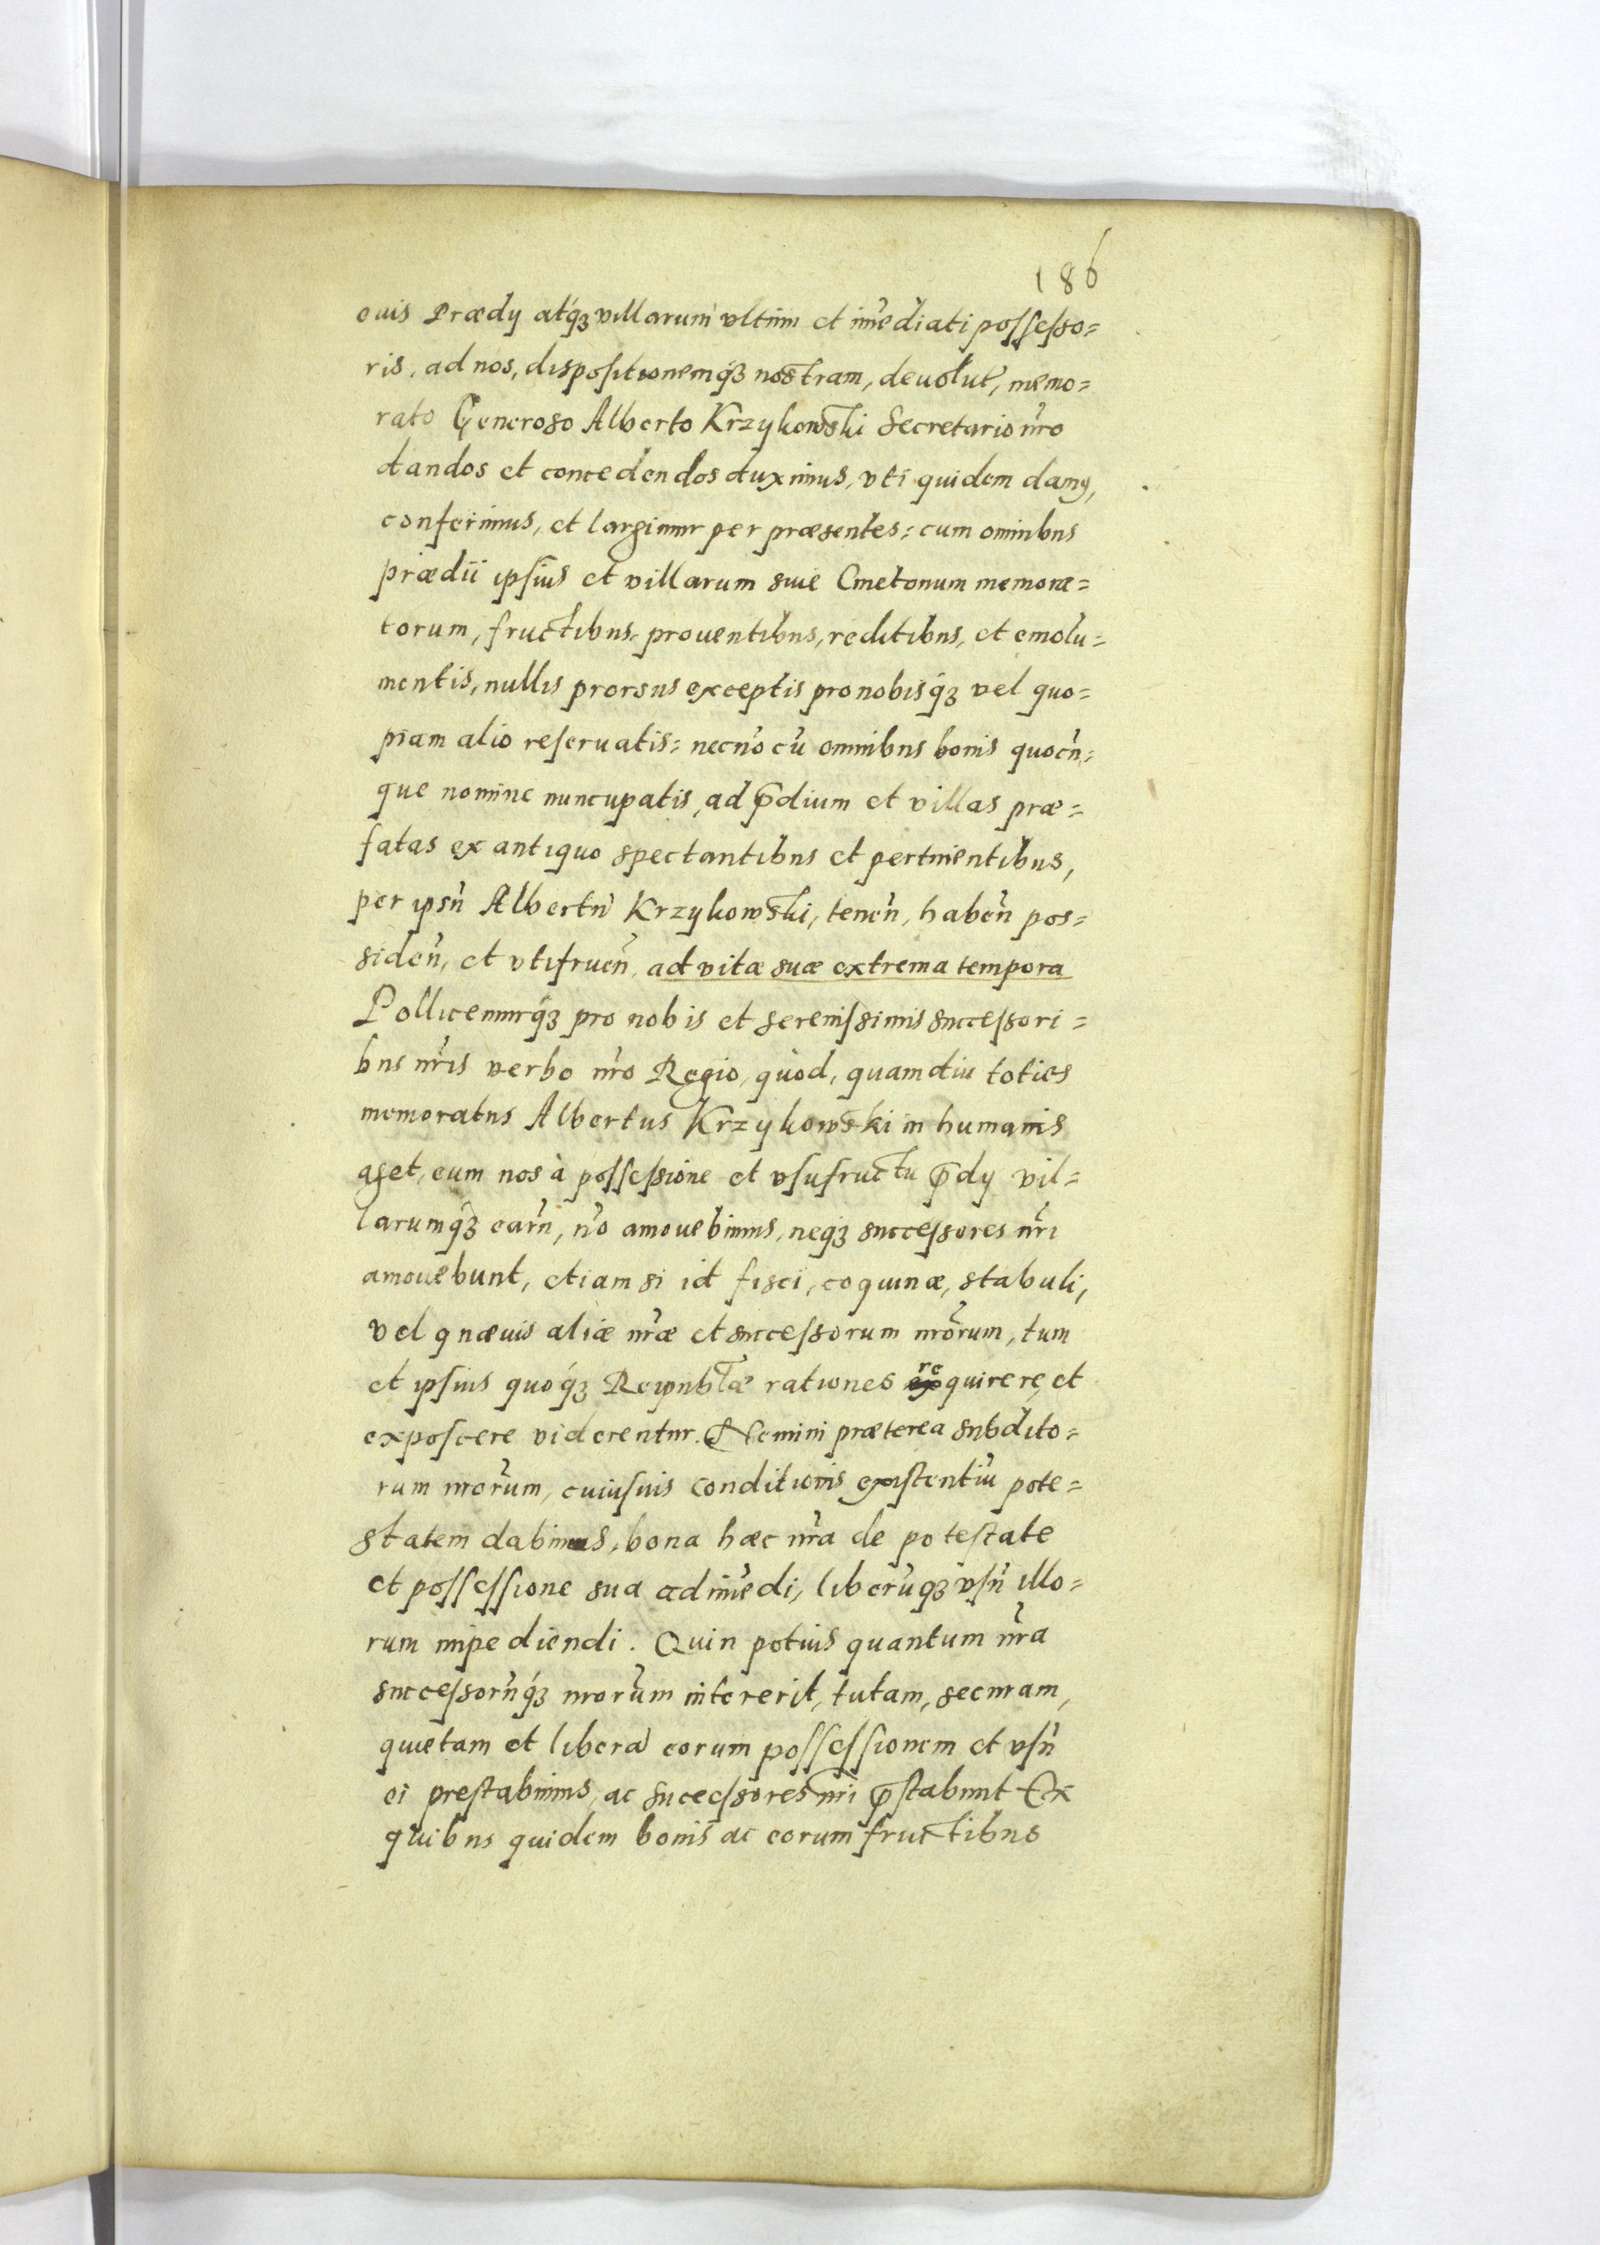 186
eius Prædy atq́ꝫ villarum vltimi et im̃ediati possesso=
ris, ad nos, dispositionemq́ꝫ nostram, deuolut, memo=
rato Generoso Alberto Krzykowski Secretario nr̃o
dandos et concedendos duximus, vti quidem damꝰ,
conferimus, et largimur per præsentes: cum omnibus
prædii ipsius et villarum siue Cmetonum memora=
torum, fructibus, prouentibus, reditibus, et emolu=
mentis, nullis prorsus exceptis pro nobisq́ꝫ vel quo=
piam alio reseruatis: necnõ cũ omnibus bonis quocũ=
que nomine nuncupatis, ad p̃dium et villas præ=
fatas ex antiquo spectantibus et pertinentibus,
per ipsũ Albertũ Krzykowski, tenen̄, haben̄ pos=
siden̄, et vtifruen̄ ad vitæ suæ extrema tempora
Pollicemurq́ꝫ pro nobis et serenissimis successori=
bus nr̃is verbo nr̃o Regio, quòd, quamdiu toties
memoratus Albertus Krzykowski in humanis
aget, eum nos à possessione et vsufructu p̃dy vil=
larumq́ꝫ earũ, nõ amouebimus, neq́ꝫ successores nr̃i
amouebunt, etiam si id fisci, coquinæ, stabuli,
vel quæuis aliæ nr̃æ et successorum nr̃orum, tum
et ipsius quoq́ꝫ Reipubl̃æ rationes requirere, et
exposcere viderentur. Nemini præterea subdito=
rum nr̃orum, cuiusuis conditionis existentiũ pote=
statem dabimus, bona hæc nr̃a de potestate
et possessione sua adim̃edi, liberũqꝫ vsũ illo=
rum impediendi. Quin potius quantum nr̃a
successorũq́ꝫ nr̃orum intererit, tutam, securam,
quietam et liberã eorum possessionem et vsũ
ei prestabimus, ac successores nr̃i p̃stabunt Ex
quibus quidem bonis ac eorum fructibus